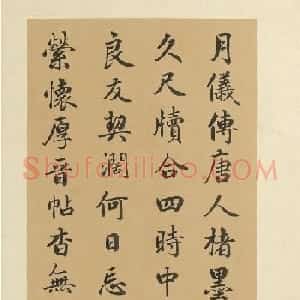 月儀傳唐人楮墨
久尺牘合四時中
良友契濶何日忘
縈懷厚音帖杳無